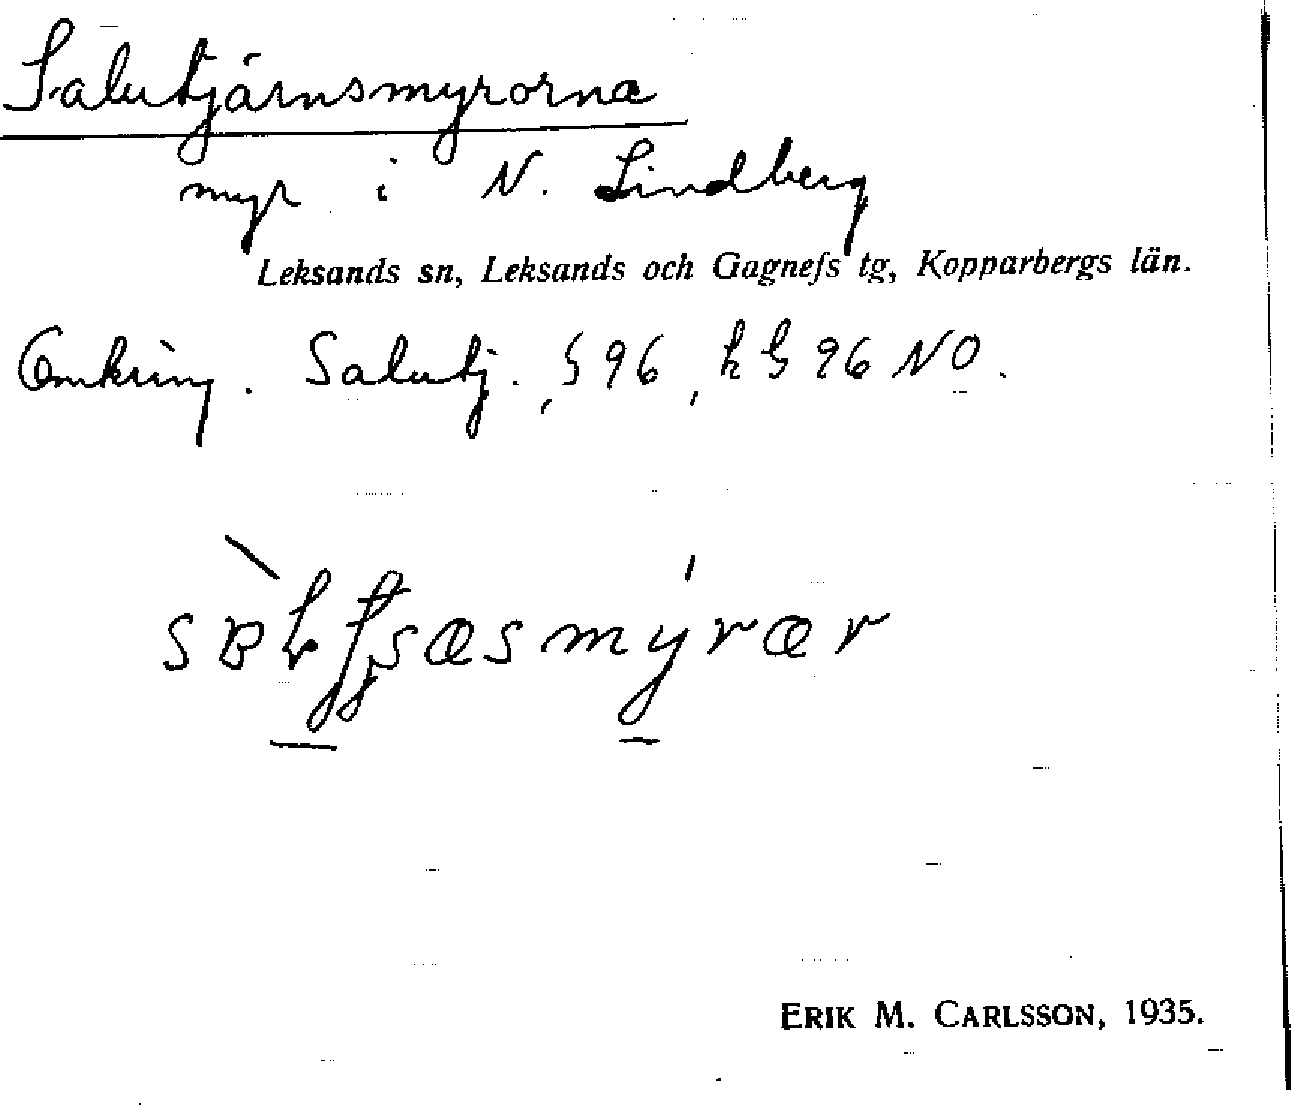 Salutjärnsmyrorna
myr i N. Lindberg
Leksands sn, Leksands och Gagnefs tg, Kopparbergs län.
Omkring. Salutj. , § 96, k § 96 NO.
ERIK M. CARLSSON, 1935.